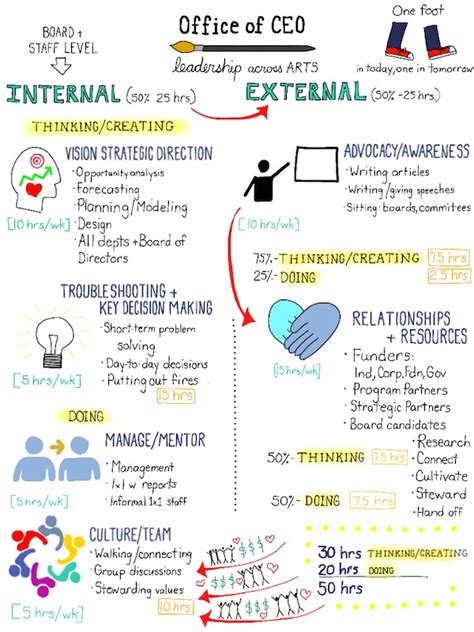 BOARD +
STAFF LEVEL
Office of CEO
leadership across ARTS
One foot
in today, one in tomorrow
INTERNAL (50% 25 hrs)
EXTERNAL (50% -25 hrs)
THINKING/CREATING
VISION STRATEGIC DIRECTION
• Opportunity analysis
• Forecasting
• Planning/Modeling
• Design
• All depts + Board of
Directors
[10 hrs/wk]
TROUBLESHOOTING +
KEY DECISION MAKING
• Short-term problem
solving
• Day-to-day decisions
• Putting out fires
[5 hrs/wk]
15 hrs
DOING
MANAGE/MENTOR
• Management
• 1x1 w reports
• Informal 1x1 staff
[5 hrs/wk]
CULTURE/TEAM
• Walking/connecting
• Group discussions
• Stewarding values
[5 hrs/wk]
10 hrs
ADVOCACY/AWARENESS
• Writing articles
• Writing/giving speeches
• Sitting: boards, commitees
[10 hrs/wk]
75%- THINKING/CREATING 7.5 hrs
25%- DOING 2.5 hrs
RELATIONSHIPS
+ RESOURCES
• Funders:
Ind, Corp, Fdn, Gov
• Program Partners
• Strategic Partners
• Board candidates
[15 hrs/wk]
50%- THINKING 7.5 hrs
50%- DOING 7.5 hrs
• Research
• Connect
• Cultivate
• Steward
• Hand off
$$$
$$$
$$$
30 hrs THINKING/CREATING
20 hrs DOING
50 hrs